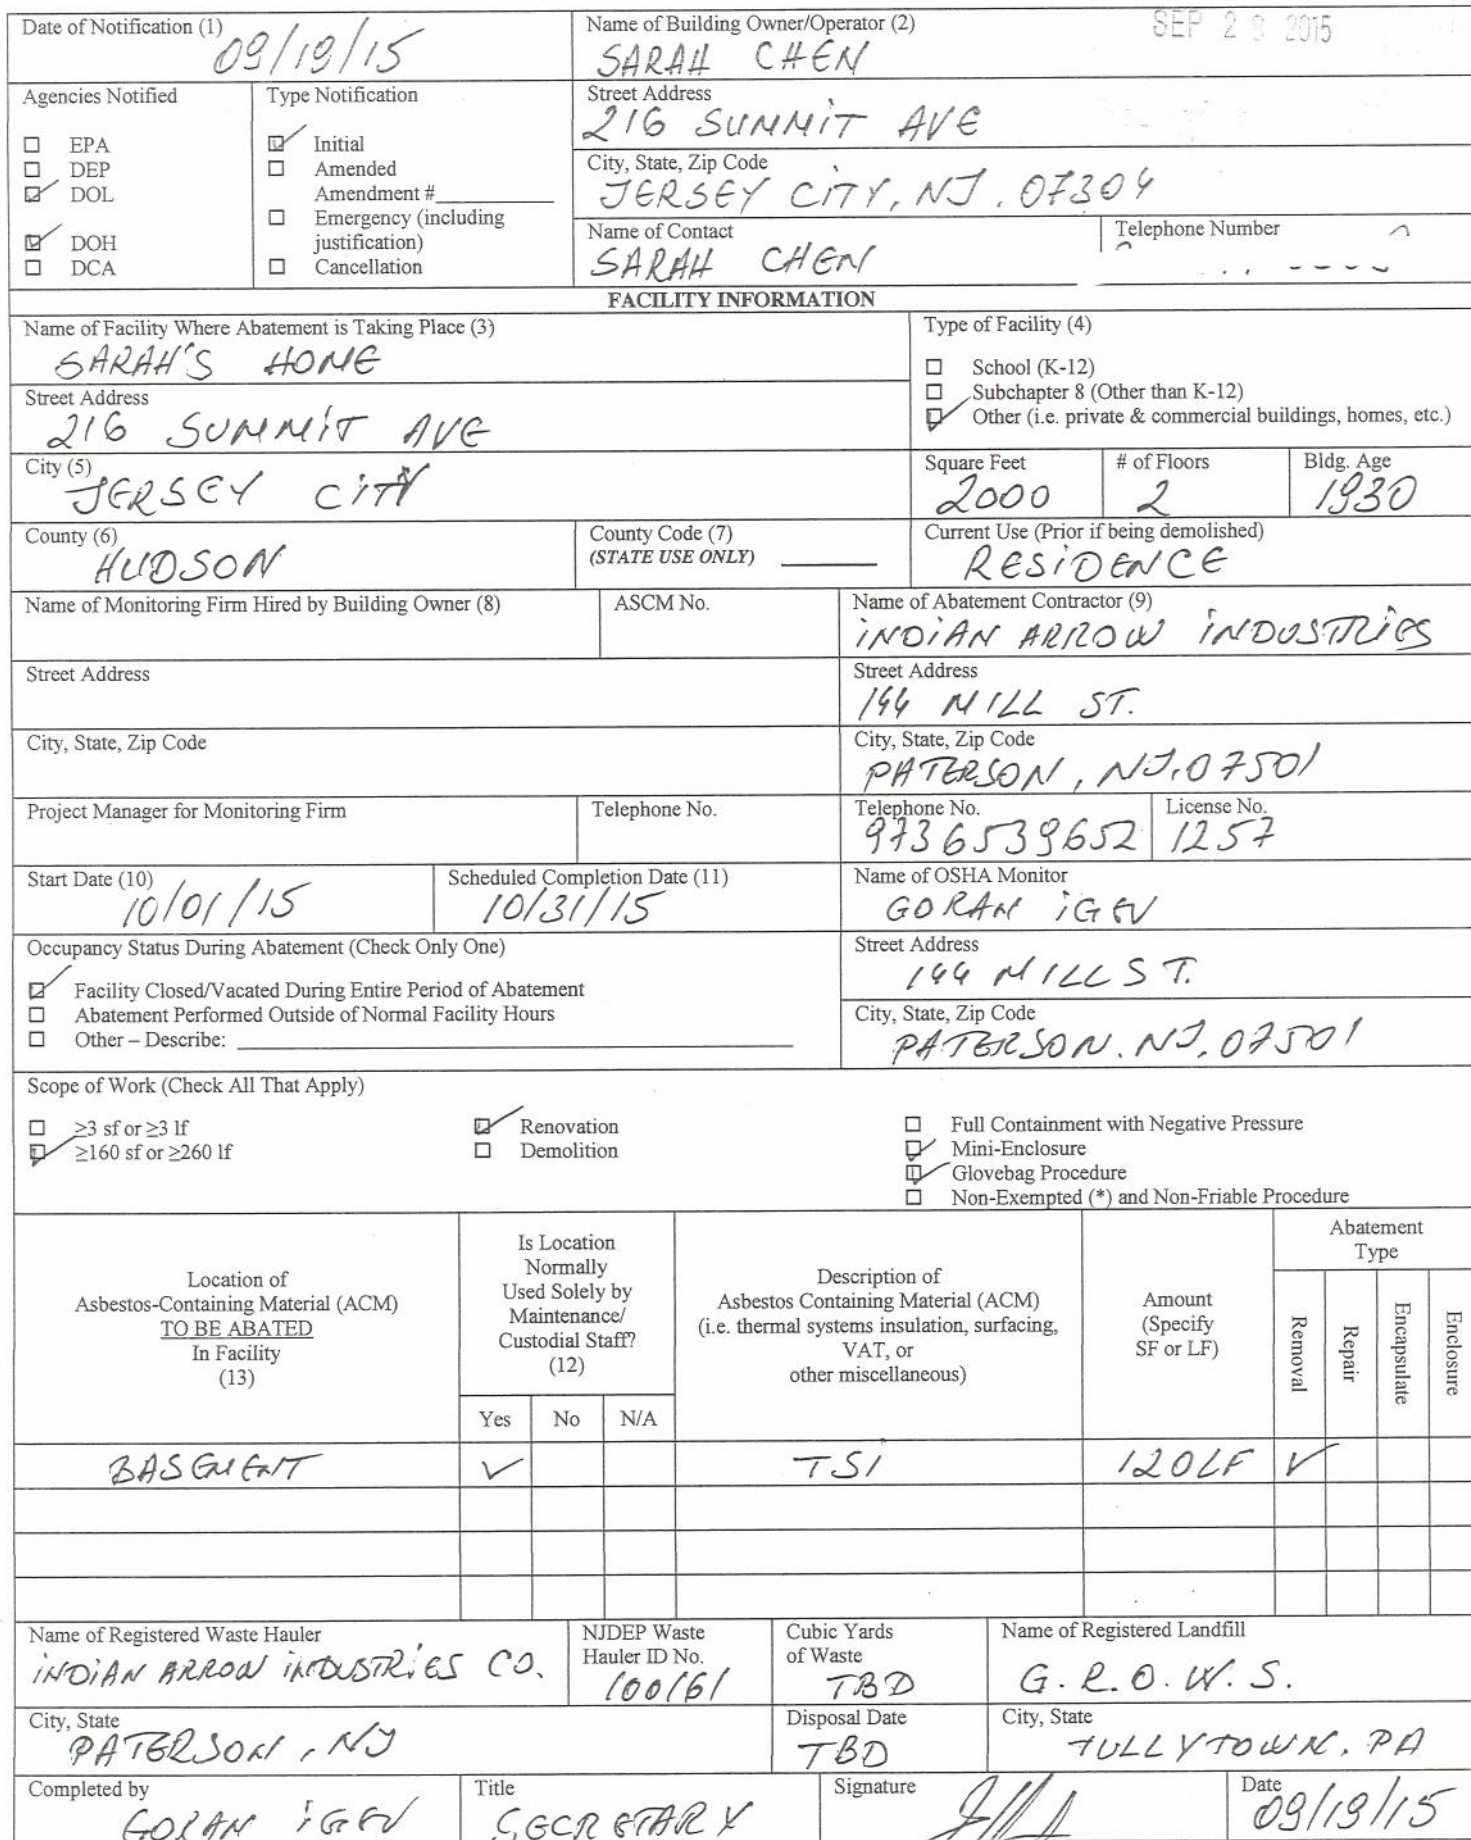 Date of Notification (1)
09/19/15
Name of Building Owner/Operator (2)
SARAH CHEN
SEP 2 2015
Agencies Notified
☐ EPA
☐ DEP
☑ DOL
☑ DOH
☐ DCA
Type Notification
☑ Initial
☐ Amended
Amendment #
☐ Emergency (including
justification)
☐ Cancellation
Street Address
216 SUMMIT AVE
City, State, Zip Code
JERSEY CITY, NJ. 07304
Name of Contact
SARAH CHEN
Telephone Number
FACILITY INFORMATION
Name of Facility Where Abatement is Taking Place (3)
SARAH'S HOME
Type of Facility (4)
☐ School (K-12)
☐ Subchapter 8 (Other than K-12)
☑ Other (i.e. private & commercial buildings, homes, etc.)
Street Address
216 SUMMIT AVE
City (5)
JERSEY CITY
Square Feet
2000
# of Floors
2
Bldg. Age
1930
County (6)
HUDSON
County Code (7)
(STATE USE ONLY)
Current Use (Prior if being demolished)
RESIDENCE
Name of Monitoring Firm Hired by Building Owner (8)
ASCM No.
Name of Abatement Contractor (9)
INDIAN ARROW INDUSTRIES
Street Address
Street Address
144 MILL ST.
City, State, Zip Code
City, State, Zip Code
PATERSON, NJ. 07501
Project Manager for Monitoring Firm
Telephone No.
Telephone No.
9736539652
License No.
1257
Start Date (10)
10/01/15
Scheduled Completion Date (11)
10/31/15
Name of OSHA Monitor
GORAN IGEV
Occupancy Status During Abatement (Check Only One)
☑ Facility Closed/Vacated During Entire Period of Abatement
☐ Abatement Performed Outside of Normal Facility Hours
☐ Other – Describe:
Street Address
144 MILL ST.
City, State, Zip Code
PATERSON. NJ. 07501
Scope of Work (Check All That Apply)
☐ ≥3 sf or ≥3 lf
☑ ≥160 sf or ≥260 lf
☑ Renovation
☐ Demolition
☐ Full Containment with Negative Pressure
☑ Mini-Enclosure
☑ Glovebag Procedure
☐ Non-Exempted (*) and Non-Friable Procedure
Location of
Asbestos-Containing Material (ACM)
TO BE ABATED
In Facility
(13)
Is Location
Normally
Used Solely by
Maintenance/
Custodial Staff?
(12)
Yes No N/A
Description of
Asbestos Containing Material (ACM)
(i.e. thermal systems insulation, surfacing,
VAT, or
other miscellaneous)
Amount
(Specify
SF or LF)
Abatement
Type
Removal
Repair
Encapsulate
Enclosure
BASEMENT ✓ TSI 120LF ✓
Name of Registered Waste Hauler
INDIAN ARROW INDUSTRIES CO.
NJDEP Waste
Hauler ID No.
100161
Cubic Yards
of Waste
TBD
Name of Registered Landfill
G.R.O.W.S.
City, State
PATERSON, NJ
Disposal Date
TBD
City, State
TULLYTOWN. PA
Completed by
GORAN IGEV
Title
SECRETARY
Signature
Date
09/19/15